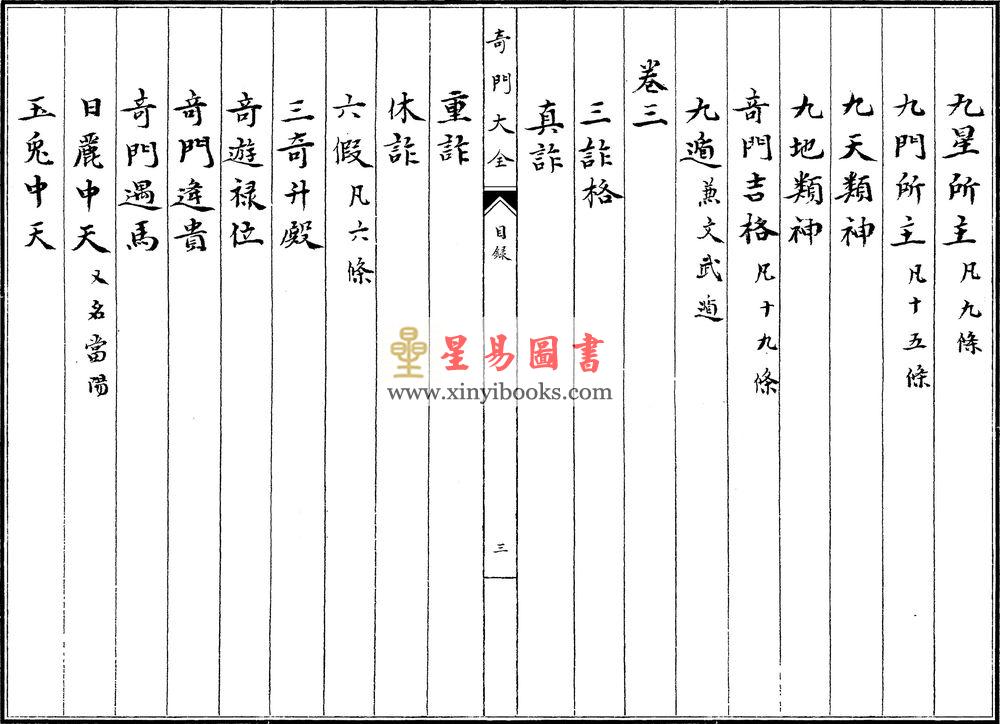 九星所主 凡九條
九門所主 凡十五條
九天類神
九地類神
奇門吉格 凡十九條
九遁 兼文武遁
卷三
三詐格
真詐
奇門大全
目錄
三
重詐
休詐
六假 凡六條
三奇升殿
奇遊祿位
奇門逢貴
奇門遇馬
日麗中天 又名當陽
玉兔中天
星易圖書
www.xinyibooks.com